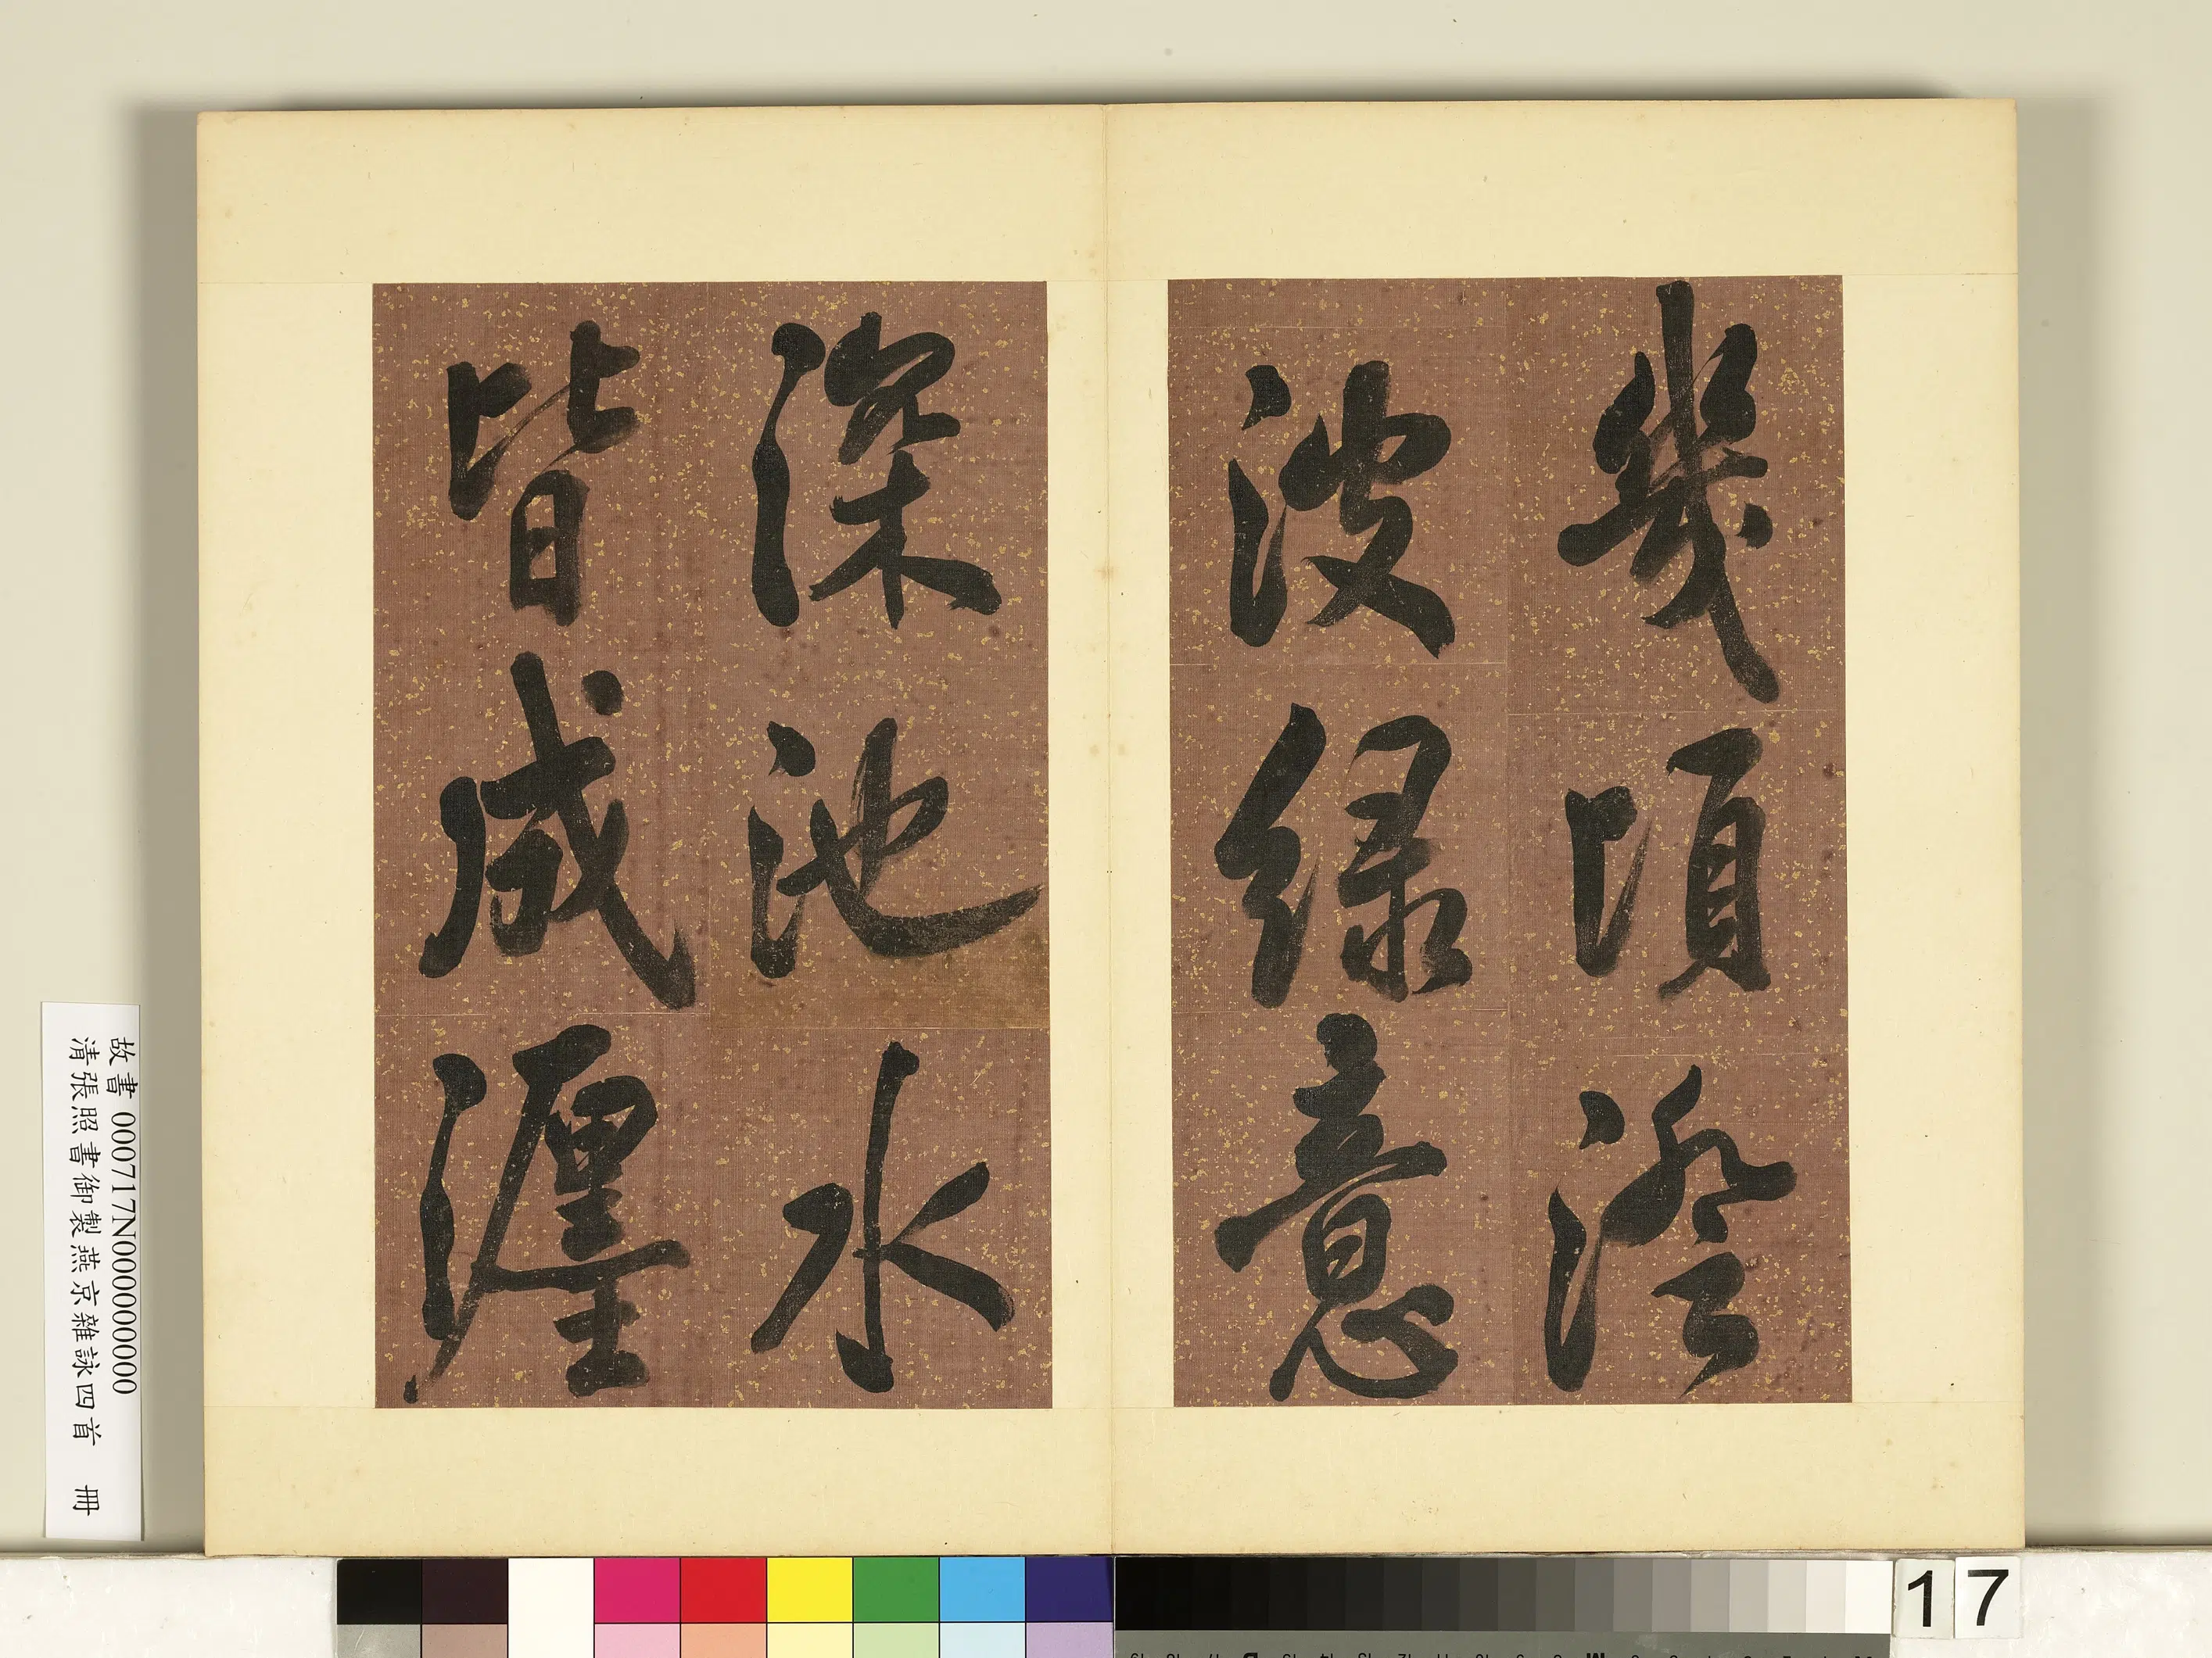 幾頃澄
波綠意
深池水
皆成瀍
故書 000717N000000000
清張照書御製燕京雜詠四首 冊
17